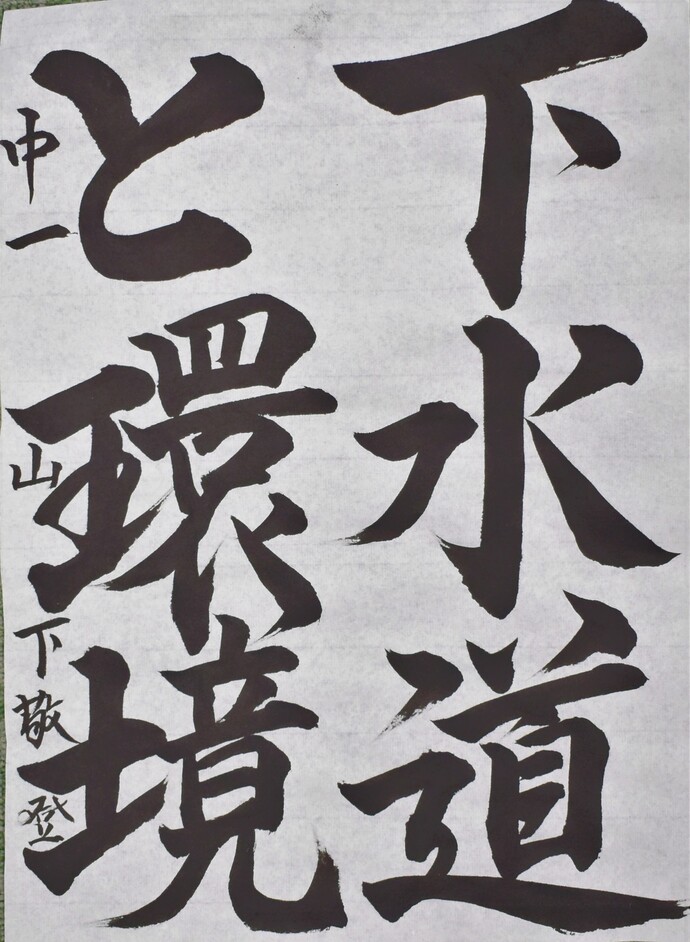 下水道
と環境
中一 山下敬登